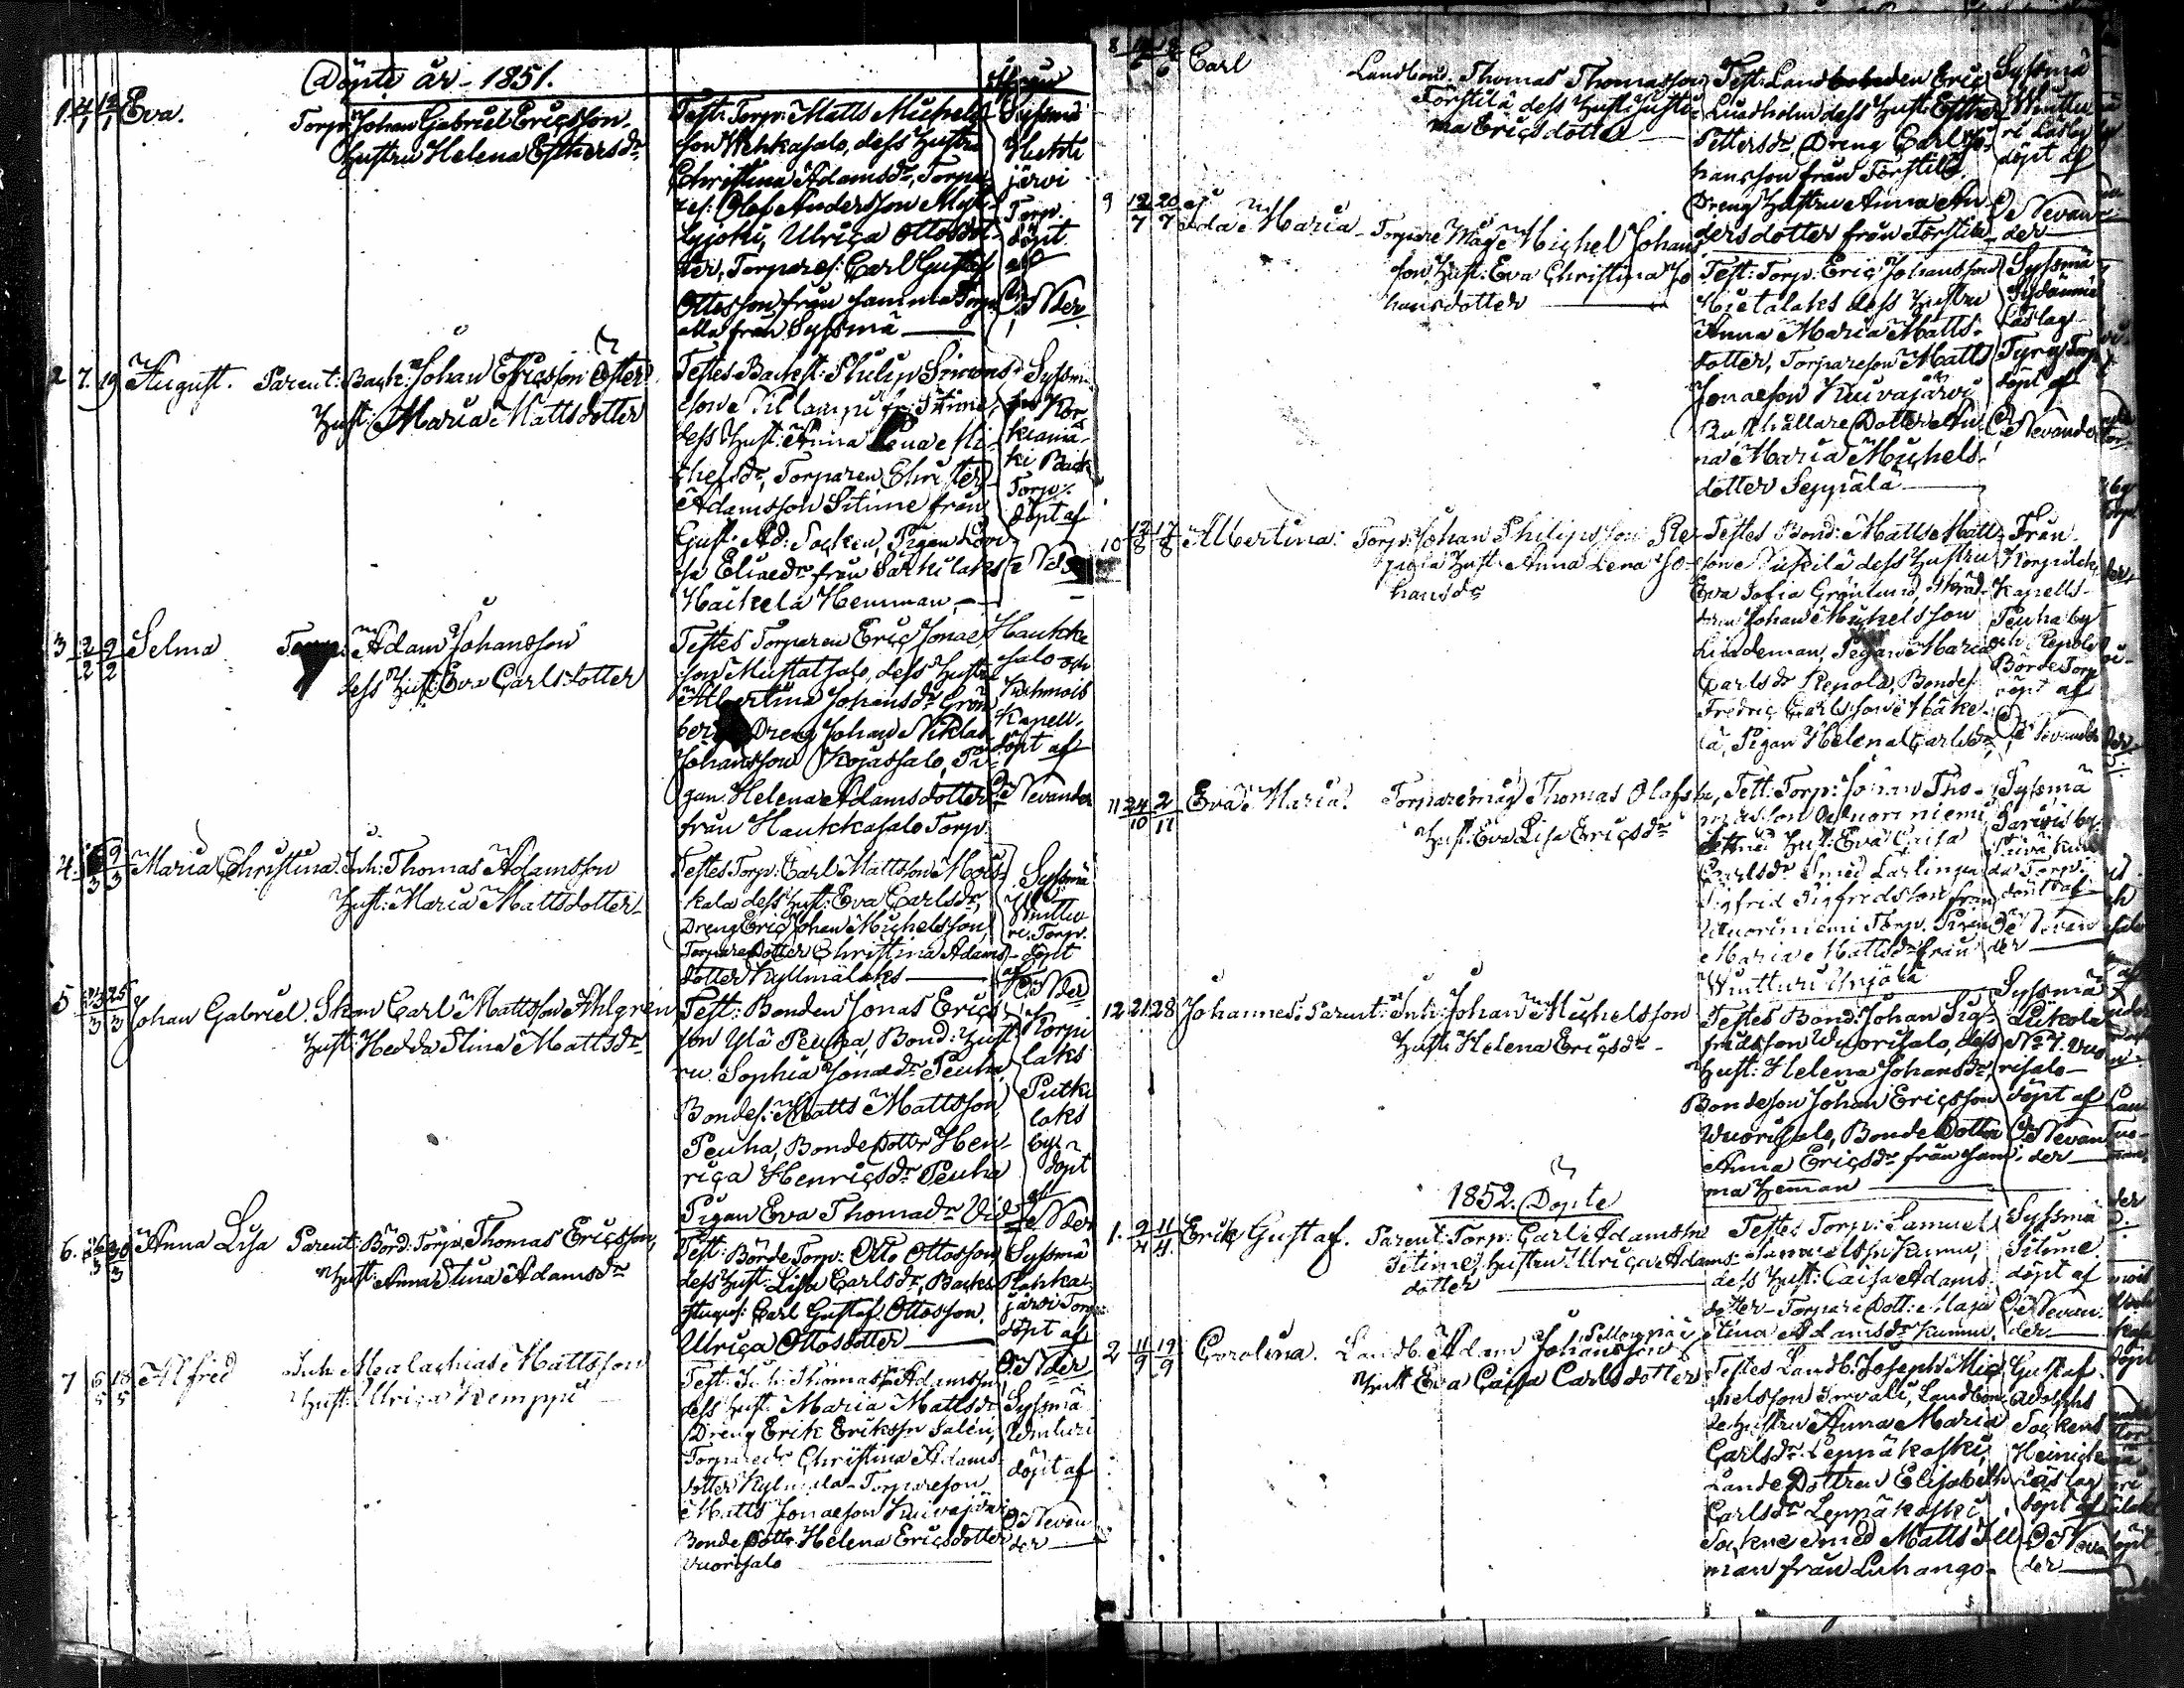 Döpte år 1851.
1. 4/1 12/1 Eva. Torp: Johan Gabriel Ericsson
Hustru Helena Esthersdr
Test: Torp: Matts Michels
son Wehkasalo, dess Hustru
Christina Adamsdr, Torpa
res: Olof Andersson Myl
lyjoki, Ulrica Ottosdot
ter, Torpares: Carl Gustaf
Ottosson från samma Torp
alla från Syssmä
Syssmä
järvi
Torp.
döpt
af
Nder
2 7. 19 August. Parent: Back: Johan Ericsson Öster
Hust: Maria Mattsdotter
Testes Backst: Philip Simons
son
dess Hust: Anna Lena Mi
chelsdr, Torparen Christer
Adamsson Sitime från
Gust: Ad: Socken, Pigan Lovi
sa Eliaedr från Särkilaks
Haikela Hemman
Syssmä
Kor
kiamä
ki Back
Torp.
döpt af
3 2/2 9/2 Selma Torp: Adam Johansson
dess Hust: Eva Carlsdotter
Testes Torparen Eric Jonae
son Mustasalo, dess Hustru
Albertina Johansdr Grön
berg Dreng Johan Niklas
Johansson Kojassalo, Pi
gan Helena Adamsdotter
från Haukkasalo Torp
Haukka
salo och
Kuhmois
Kapell.
döpt af
Nevander
4. 9/3 Maria Christina. Inh: Thomas Adamsson
Hust: Maria Mattsdotter
Testes Torp: Carl Mattsson Mois
kala dess Hust: Eva Carlsdr,
Dreng Eric Johan Michelsson,
Torpare Dotter Christina Adams
dotter Kyllmälaks
Syssmä
Wuttu
ri Torp.
döpt
af
Nder
5 25/3 Johan Gabriel. Skom Carl Mattsson Ahlgren
Hust: Hedda Stina Mattsdr
Test: Bonden Jonas Erics
son Ylä Peuha, Bond: Hust
ru Sophia Jonaedr Peuha
Bondes: Matts Mattsson
Peuha, Bonde Dotter Hen
rica Henricsdr Peuha
Pigan Eva Thomadr Vid
Korpi
laks
Putki
laks
by
döpt
af
Nder
6. 30/3 Anna Lisa Parent: Börd: Torp. Thomas Ericsson,
Hust: Anna Stina Adamsdr
Test: Börde Torp: Otto Ottosson
dess Hust: Lisa Carlsdr, Backs
stugus: Carl Gustaf Ottosson.
Ulrica Ottosdotter
Syssmä
järvi Torp
döpt af
Nder
7 6/5 18/5 Alfred Inh Malachias Mattsson
Hust: Ulrica Kemppi
Test: Inh: Thomas Adamsson
dess Hust: Maria Mattsdr
Dreng Erik Eriksson Salén,
Torparedr Christina Adams
dotter Kylmälä Torpareson
Matts Jonaeson Kuivajärvi
Bonde Dottr Helena Ericsdotter
Vuorisalo
Syssmä
Wuturi
döpt af
Nevan
der
8 Carl Landbond. Thomas Thomasson
Förstilä dess Hust: Justi
na Ericsdotter
Test: Landboeden Eric
Lindholm dess Hust: Esther
Pettersdr, Dreng Carl Jo
hansson från Förstilä.
Dreng Hustru Anna An
dersdotter från Förstilä
Syssmä
Wuttu
ri Laslag
döpt af
Nevan
der
9 12/7 20/7 Ida Maria Torpare Måg Michel Johans
son, Hust: Eva Christina Jo
hansdotter
Test: Torp: Eric Johansson
Hietalaks dess Hustru
Anna Maria Matts
dotter, Torpareson Matts
Jonaeson Kuivajärvi
Rusthållare Dotter An
na Maria Michels
dotter Seppälä
Syssmä
Laslag
Torp
döpt af
Nevander
10 12/8 17/8 Albertina: Torp: Johan Philipsson Re
pola Hust: Anna Lena Jo
hansdr
Testes Bond: Matts Matts
son dess Hustru
Eva Sofia Grönlund, Skräd
daren Johan Michelsson
Lindeman, Pigan Maria
Carlsdr Repola, Bondes
Fredric Carlsson Mäke
lä, Pigan Helena Carlsdr
Från
Korpilaks
Kapells
Peuha by
och Repola
Börde Torp
döpt af
Nevander
11 24/10 2/11 Eva Maria. Torparemåg Thomas Olofsson
Hust: Eva Lisa Ericsdr
Test: Torp: Johan Tho
masson Wuoriniemi
Hust: Eva Caisa
Carlsdr Smed Lärlingen
Sigfrid Sigfridsson från
Wuoriniemi Torp. Pigan
Maria Mattsdr från
Wuutturi
Syssmä
döpt af
Nevan
der
12 21 28 Johannes: Parent: Inh: Johan Michelsson
Hust: Helena Ericsdr
Testes Bond: Johan Sig
fridsson Wuorisalo, dess
Hust: Helena Johansdr,
Bondeson Johan Ericsson
Wuorisalo, Bonde Dotter
Anna Ericsdr från sam
ma Heman
Syssmä
Liikola
No 7. Vuo
risalo
döpt af
Nevan
der
1852. Döpte
1. 9/4 11/4 Erik Gustaf. Parent: Torp: Carl Adamsson
Sitime, Hustru Ulrica Adams
dotter
Testes Torp: Samuel
Samuelsson Kumu,
dess Hust: Caisa Adams
dotter Torpare Dott: Maja
Stina Adamsdr Kumu.
Syssmä
Sitime.
döpt af
Nevan
der
2 11/9 19/9 Carolina. Landb. Adam Johansson
Hust Eva Caisa Carlsdotter
Testes Landb. Joseph Mic
helsson Landbon
de Hustru Anna Maria
Carlsdr Leppäkoski,
Lande Dottren Elisabeth
Carlsdr Leppäkoski
Sockne smed Matts Ill
man från Luhango
Gustaf
Adolphs
Sockens
Laslag
döpt af
Nevan
der